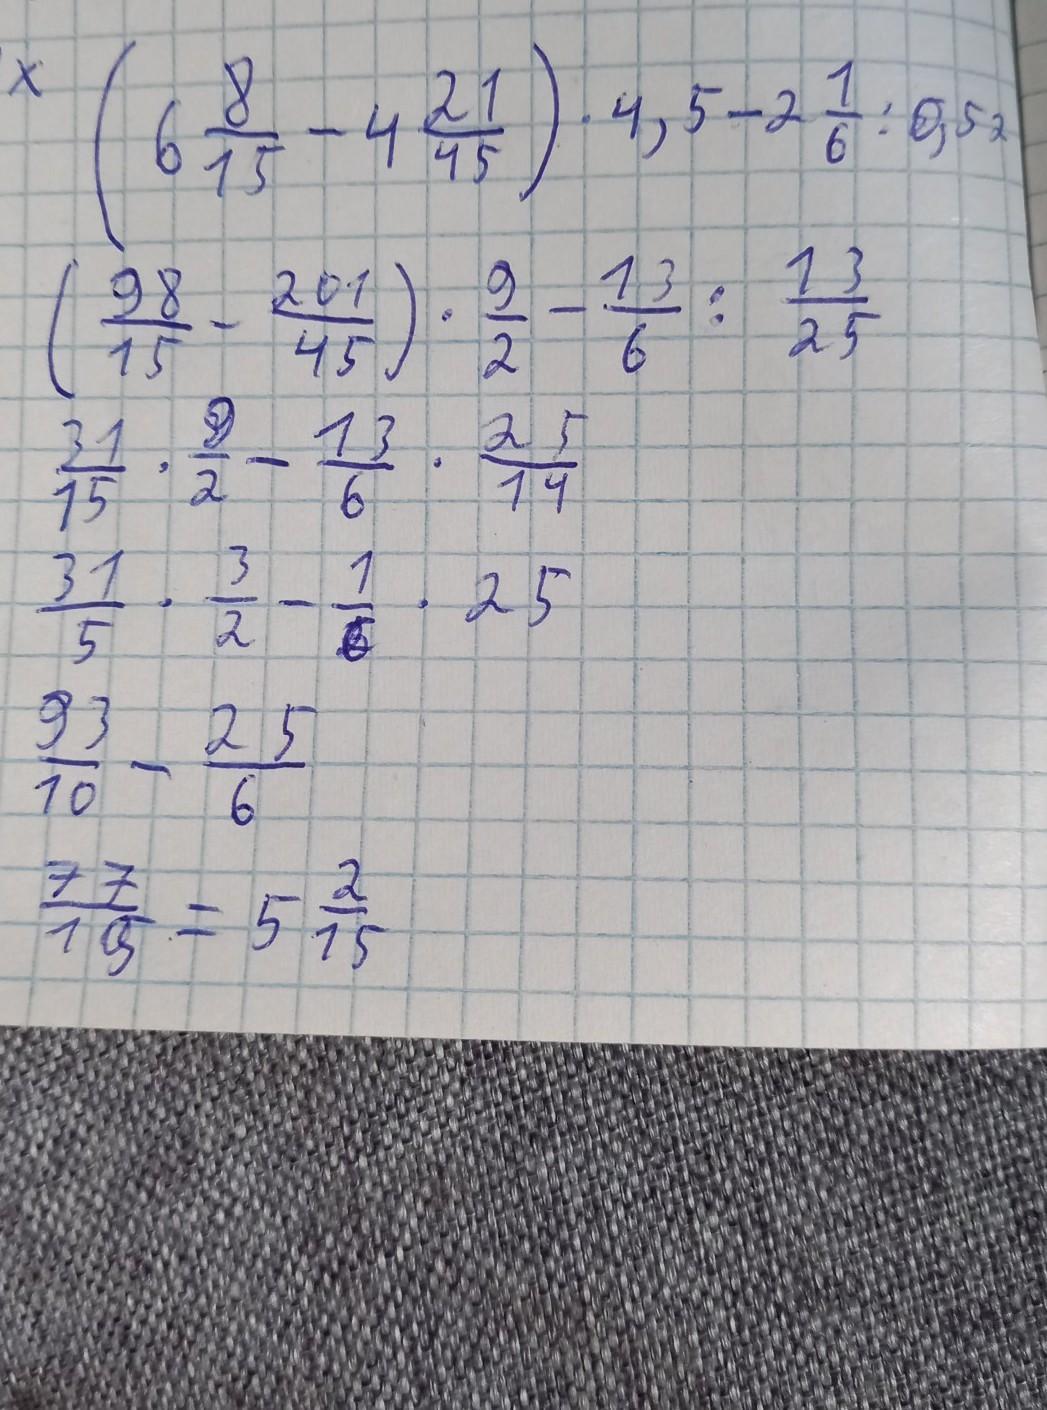 x (6 8/15 - 4 21/45) · 4,5 - 2 1/6 : 0,52
(98/15 - 201/45) · 9/2 - 13/6 : 13/25
31/15 · 9/2 - 13/6 · 25/14
31/5 · 3/2 - 1/6 · 25
93/10 - 25/6
77/15 = 5 2/15